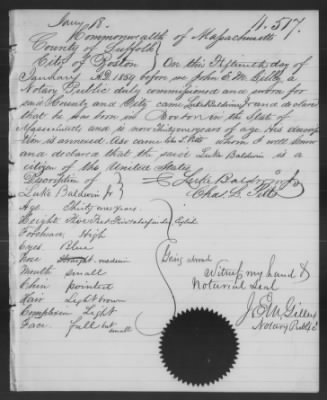 Jany 18. 11.517.
Commonwealth of Massachusetts
County of Suffolk
City of Boston } On this Fifteenth day of
January A.D. 1859 before me John E. M. Gilley a
Notary Public duly commissioned and sworn for
said County and City came Luke Baldwin Jr and declared
that he was born in Boston in the State of
Massachusetts and is now Thirty one years of age
is annexed. Also came whom I well know
and declared that the said Luke Baldwin is a
citizen of the United States
Description of Luke Baldwin Jr
Luke Baldwin Jr. } Chas L.
Age Thirty one years
Height Five Feet
Forehead, High
Eyes Blue
Nose Straight medium
Mouth small
Chin pointed
Hair Light brown
Complexion Light
Face full but small
Going abroad
Witness my hand &
Notarial Seal
J. E. M. Gilley
Notary Public